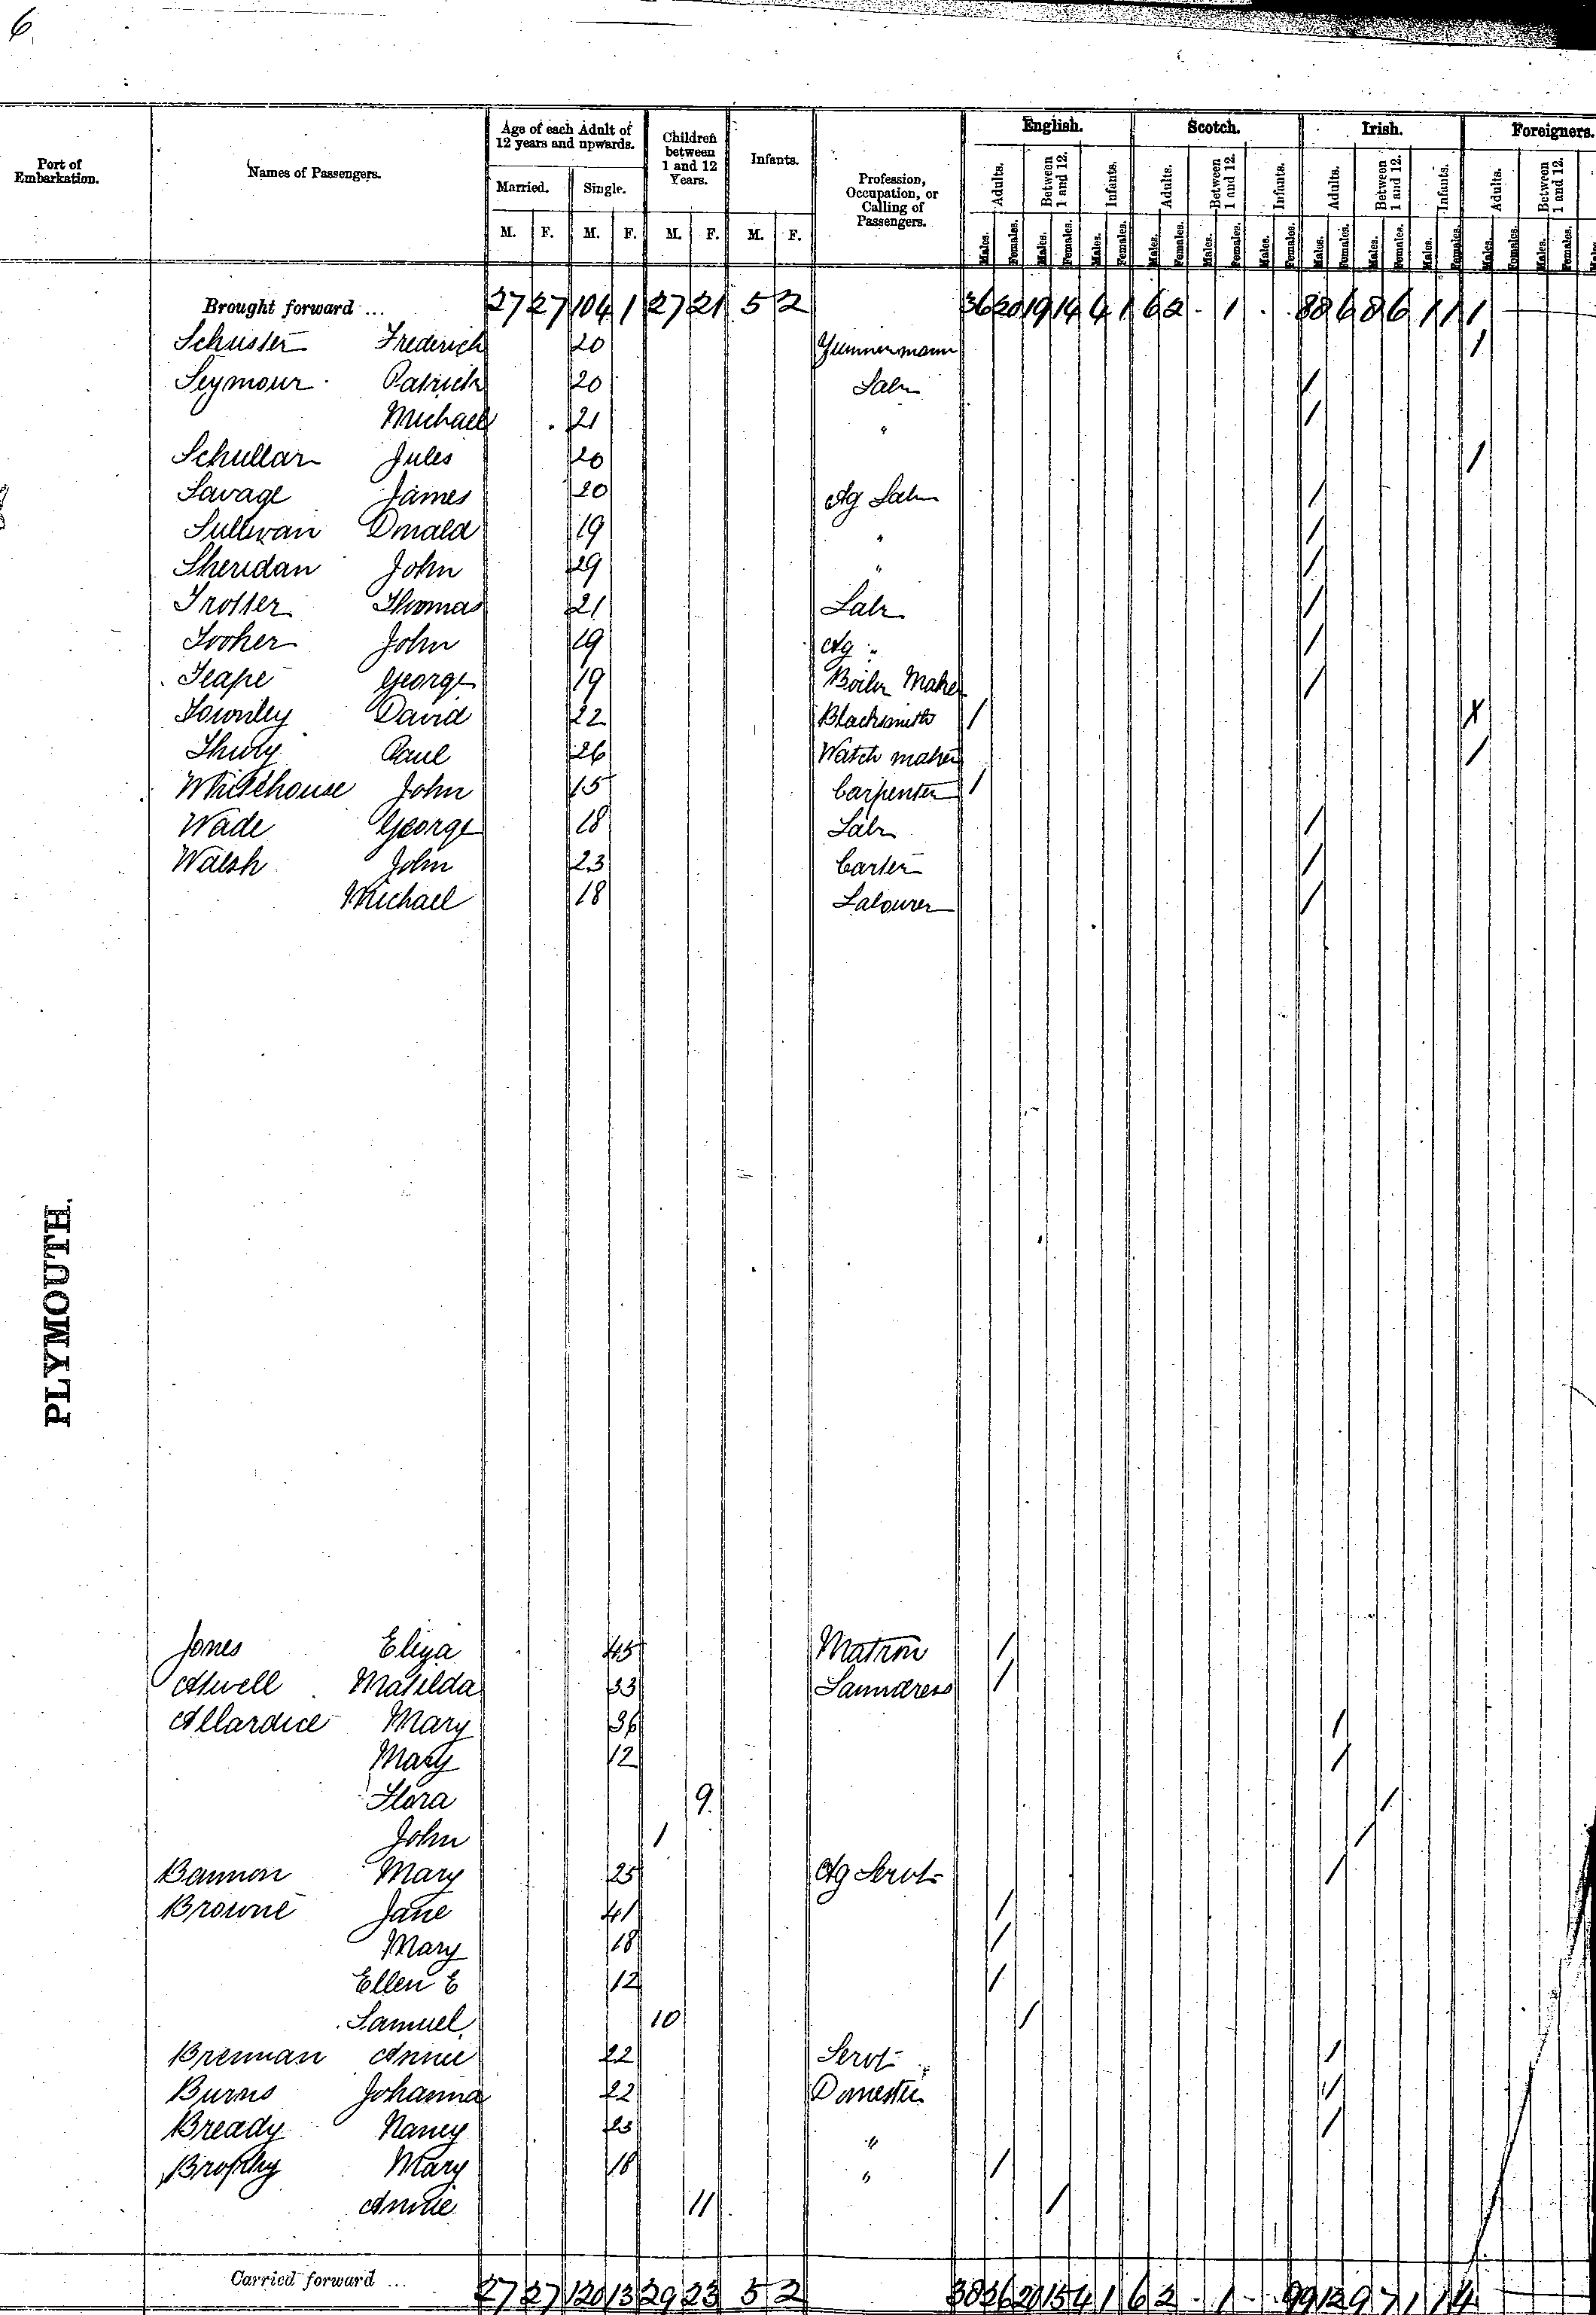 6
Port of Embarkation.
Names of Passengers.
Age of each Adult of 12 years and upwards.
Married. Single.
M. F. M. F.
Children between 1 and 12 Years.
M. F.
Infants.
M. F.
Profession, Occupation, or Calling of Passengers.
English. Scotch. Irish. Foreigners.
Adults. Between 1 and 12. Infants. Adults. Between 1 and 12. Infants. Adults. Between 1 and 12. Infants. Adults. Between 1 and 12.
Males. Females. Males. Females. Males. Females. Males. Females. Males. Females. Males. Females. Males. Females. Males. Females. Males. Females. Males. Females. Males. Females.
Brought forward ... 27 27 104 1 27 21 5 2 36 20 19 14 4 1 6 2 . 1 . . 88 6 8 6 1 1 1
Schuster Frederich 20 /
Seymour Patrick 20 Labr /
Michael 21 " /
Schullar Jules 20 /
Savage James 20 Ag Labr /
Sullivan Donald 19 " /
Sheridan John 29 " /
Trotter Thomas 21 Labr /
Tooher John 19 Ag " /
Teape George 19 Boiler Maker /
Townley David 22 Blacksmith / X
Thury Paul 26 Watch maker /
Whitehouse John 15 Carpenter /
Wade George 18 Labr /
Walsh John 23 Carter /
Michael 18 Labourer /
PLYMOUTH.
Jones Eliza 45 Matron /
Atwell Matilda 33 Laundress /
Allardice Mary 36 /
Mary 12 /
Flora 9 /
John 1 /
Bannon Mary 25 Ag Servt /
Browne Jane 41 /
Mary 18 /
Ellen E 12 /
Samuel 10 /
Brennan Annie 22 Servt /
Burns Johanna 22 Domestic /
Bready Nancy 23 " /
Brophy Mary 18 " /
Annie 11 /
Carried forward ... 27 27 120 13 29 23 5 2 38 26 20 15 4 1 6 2 . 1 - 99 12 9 7 1 1 4